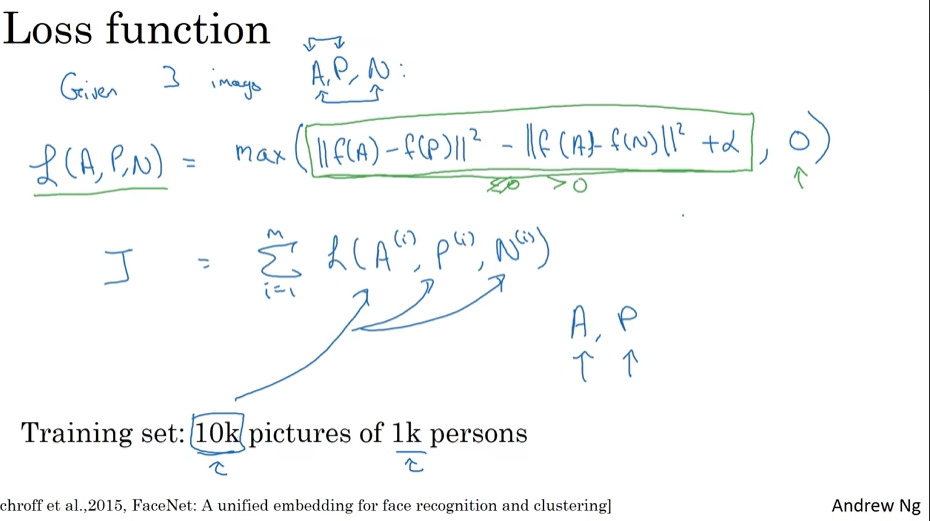 Loss function
Given 3 images A, P, N:
L(A, P, N) = max(||f(A) - f(P)||² - ||f(A) - f(N)||² + α, 0)
≤0 >0
J = Σ_{i=1}^{M} L(A^(i), P^(i), N^(i))
A, P
Training set: 10k pictures of 1k persons
chroff et al.,2015, FaceNet: A unified embedding for face recognition and clustering]
Andrew Ng